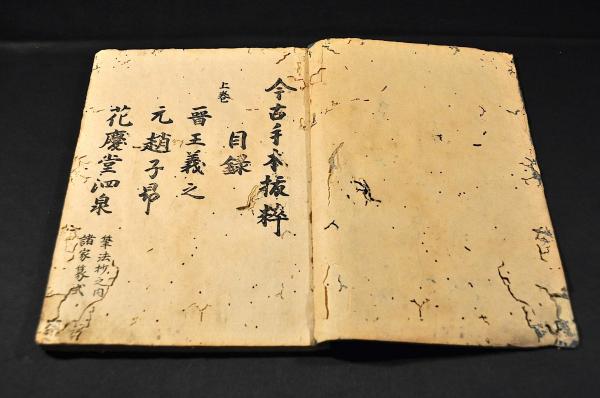 今古手本抜粹
目録
上巻
晋王義之
元趙子昂
花慶堂泗泉
筆法抄之内
諸家篆式